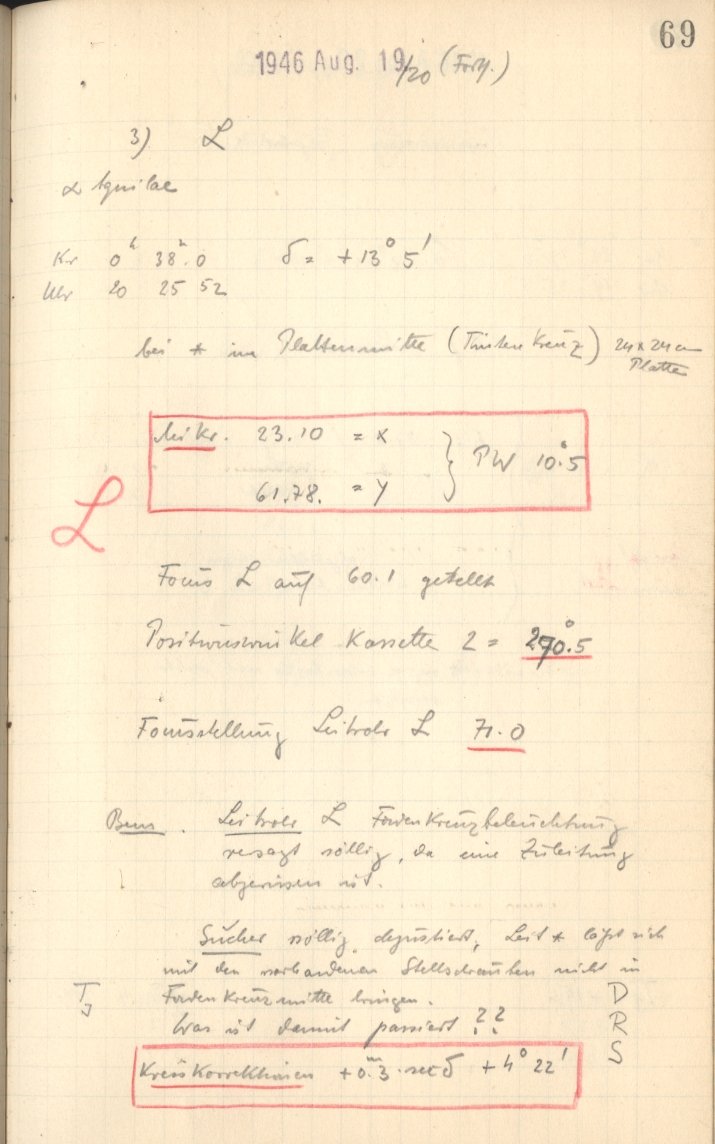 69
1946 Aug. 19/20 (Forts.)
3) L
α Aquilae
Kr 0h 38m.0 δ = +13° 5'
Uhr 20 25 52
bei * in Plattenmitte (Tintenkreuz) 24 x 24 cm
Platte
Mikr. 23.10 = X
61.78. = Y } PW 10°.5
L
Focus L auf 60.1 gestellt
Positionswinkel Kassette 2 = 270°.5
Focusstellung Leitrohr L 71.0
Bem. Leitrohr L Fadenkreuzbeleuchtung
versagt völlig, da eine Zuleitung
abgerissen ist.
Sucher völlig dejustiert, Leit * läßt sich
mit den vorhandenen Stellschrauben nicht in
Fadenkreuzmitte bringen. D
Was ist damit passiert ?? R
S
Kreiskorrektionen +0m.3 · sec δ +4° 22'